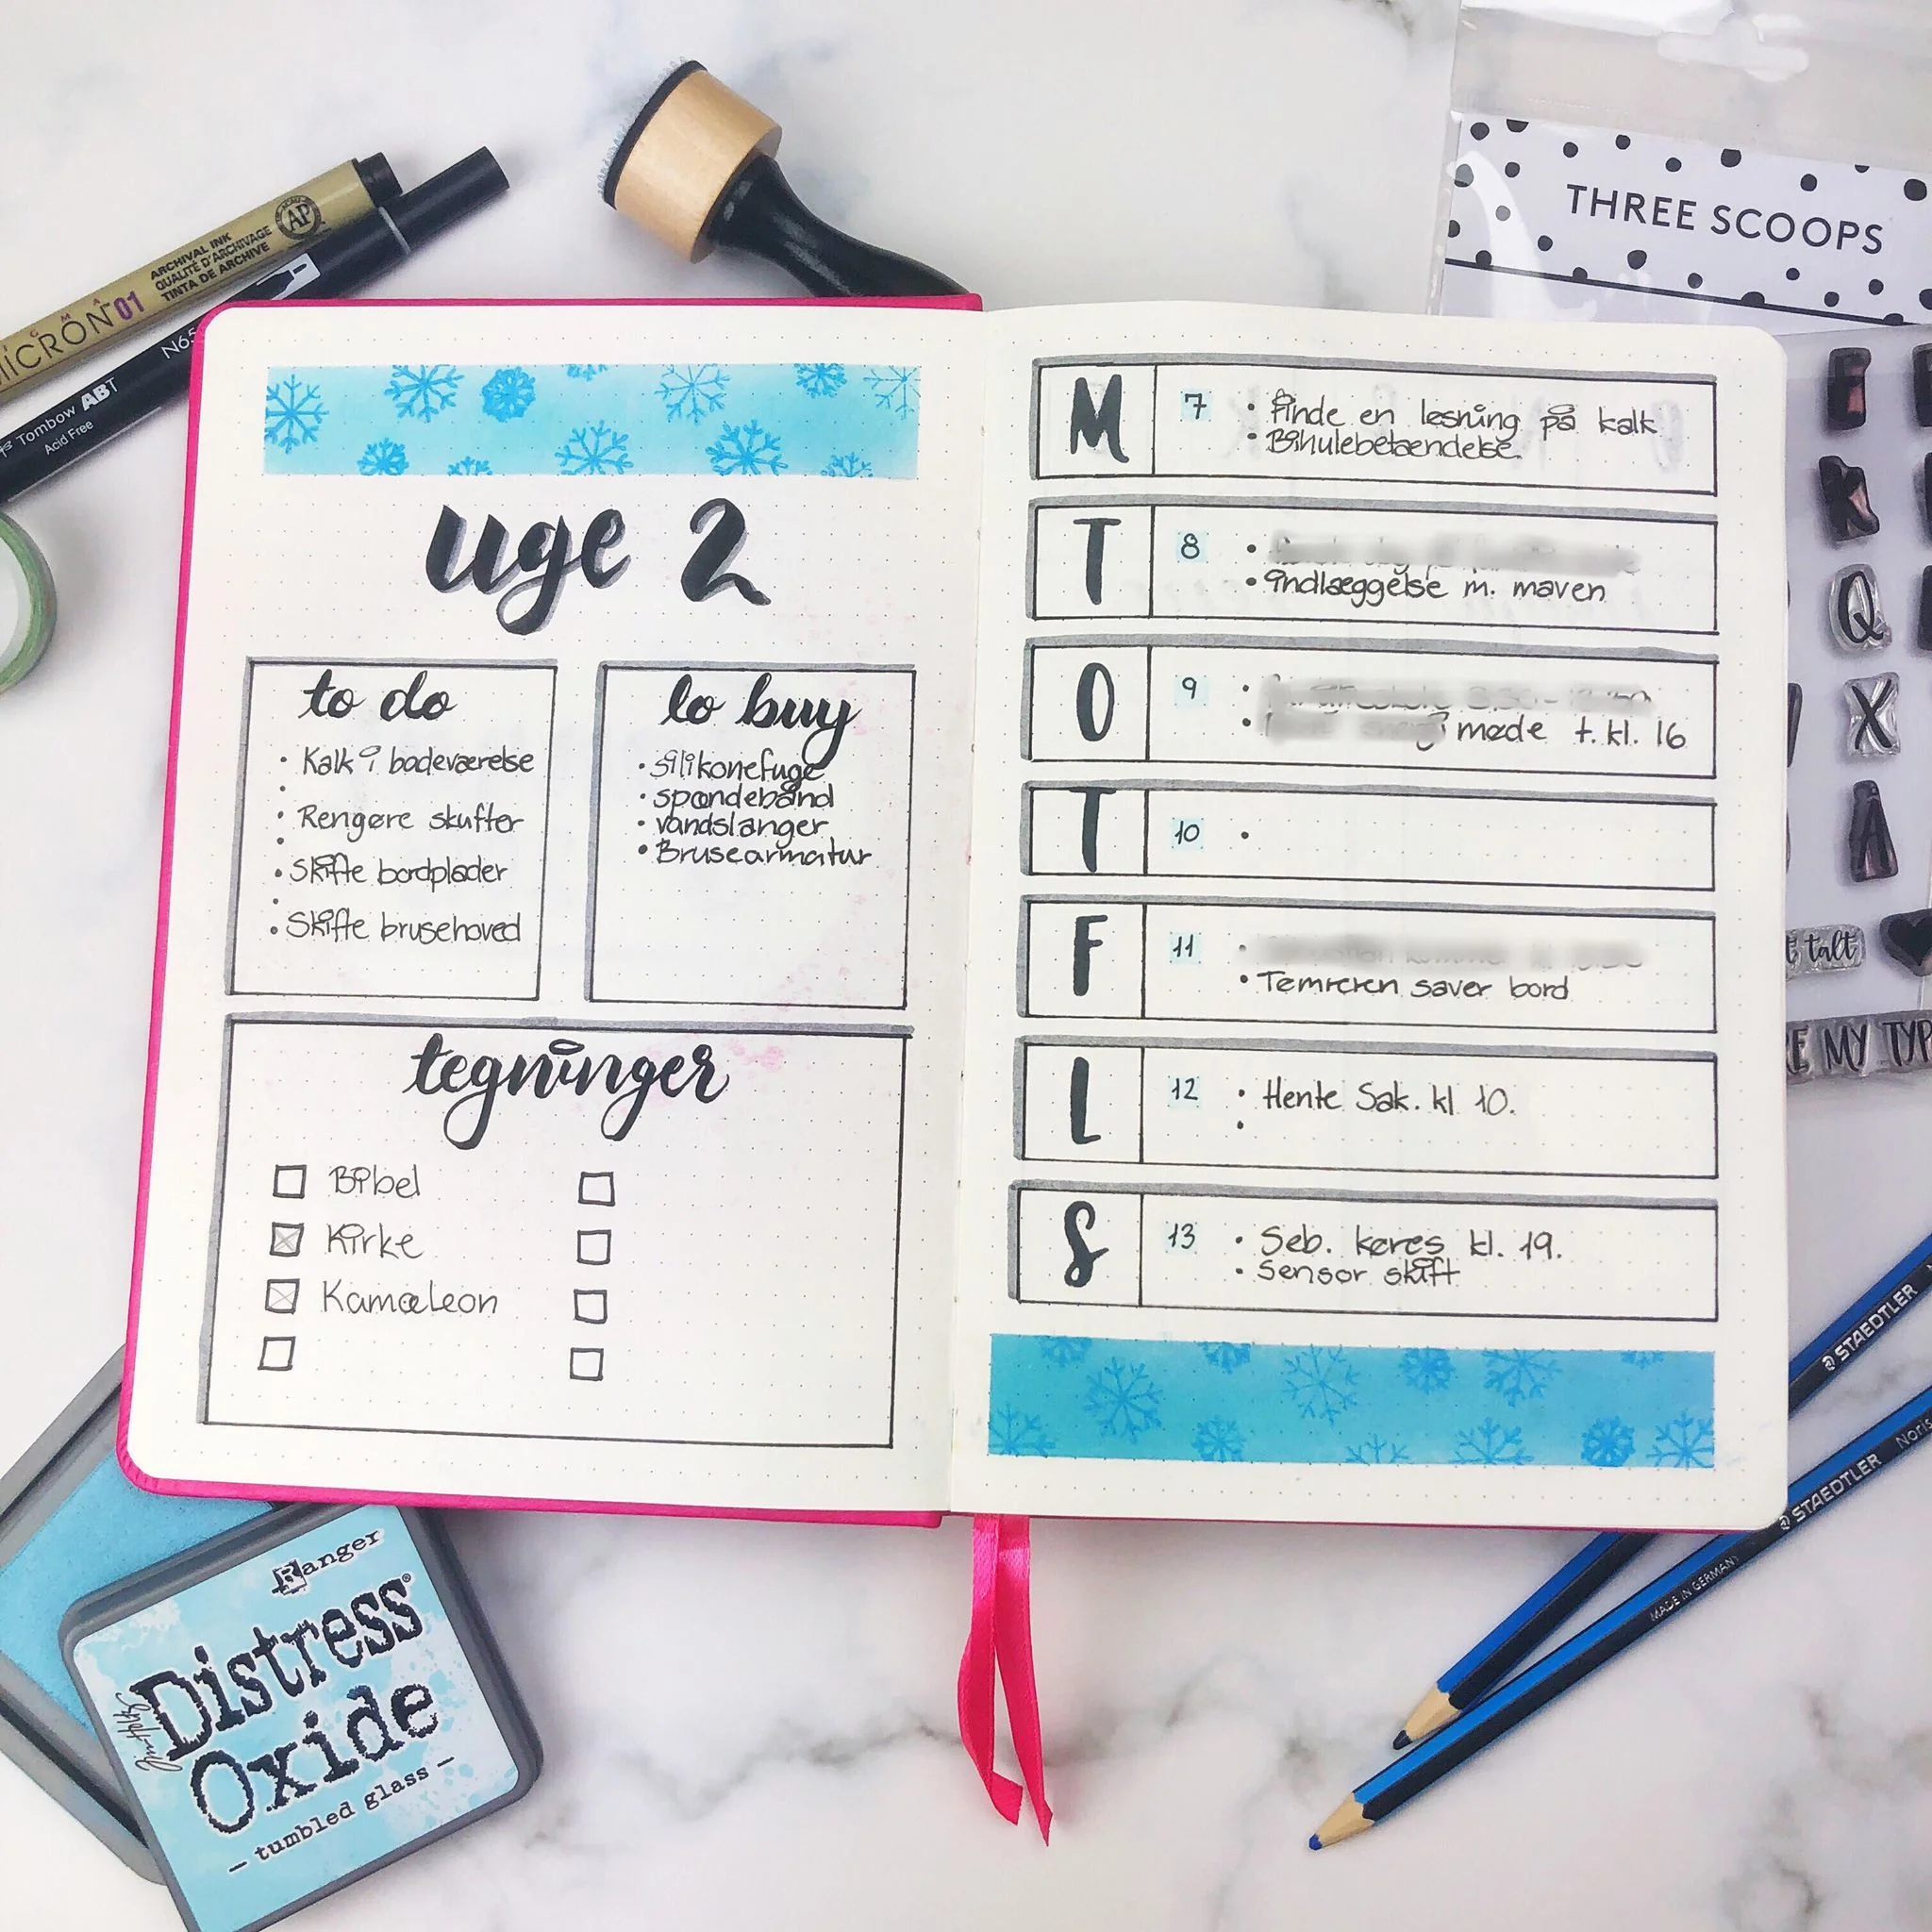 MICRON 01
ARCHIVAL INK
QUALITÉ D'ARCHIVAGE
TINTA DE ARCHIVE
AP
Tombow ABT
Acid Free
THREE SCOOPS
uge 2
to do
• Kalk i badeværelse
•
• Rengøre skuffer
•
• Skifte bordplader
•
• Skifte brusehoved
to buy
• Silikonefuge
• spændebånd
• vandslanger
• Brusearmatur
tegninger
Bibel
Kirke
Kamæleon
M 7 • Finde en løsning på kalk
• Bihulebetændelse.
T 8 •
• indlæggelse m. maven
O 9 •
• møde t. kl. 16
T 10 •
F 11 •
• Tømreren saver bord
L 12 • Hente Sak. kl 10.
•
S 13 • Seb. køres kl. 19.
• Sensor skift
Q
X
A
talt
MY TYP
STAEDTLER
STAEDTLER Noris
MADE IN GERMANY
Ranger
Distress
Oxide
– tumbled glass –